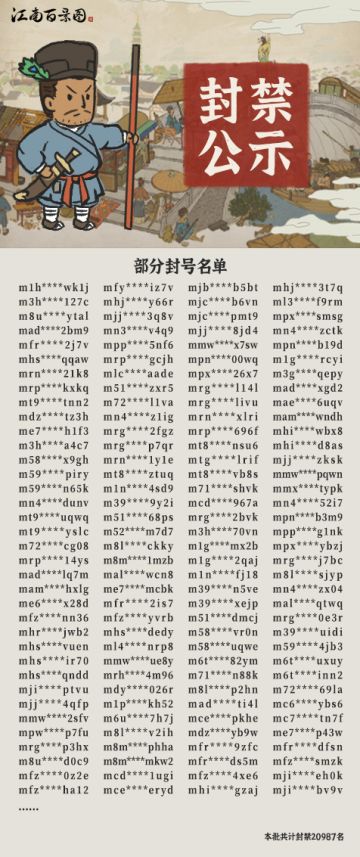 江南百景图
封禁
公示
部分封号名单
m1h****wk1j mfy****iz7v mjb****b5bt mhj****3t7q
m3h****127c mhj****y66r mjc****b6vn ml3****f9rm
m8u****ytal mjj****3q8v mjc****pmt9 mpx****smsg
mad****2bm9 mn3****v4q9 mjj****8jd4 mn4****zctk
mfr****2j7v mpp****5nf6 mmw****x7sw mpn****b19d
mhs****qqaw mrp****gcjh mpn****00wq m1g****rcyi
mrn****21k8 mlc****aade mpx****26x7 m3g****qepy
mrp****kxkq m51****zxr5 mrg****l14l mad****xgd2
mt9****tnn2 m72****l1va mrg****livu mae****6uqv
mdz****tz3h mn4****z1ig mrn****xlri mam****wndh
me7****h1f3 mrg****2fgz mrp****696f mhi****wbx8
m3h****a4c7 mrg****p7qr mt8****nsu6 mhi****d8as
m58****x9gh mrn****1y1e mtg****lrif mjj****zksk
m59****piry mt8****ztuq mt8****vb8s mmw****pqwn
m59****n65k m1n****4sd9 m71****shvk mmx****typk
mn4****dunv m39****9y2i mcd****967a mn4****52i7
mt9****uqwq m51****68ps mrg****2bvk mpn****b3m9
mt9****yslc m52****m7d7 m3h****70vn mpp****g1nk
m72****cg08 m8l****ckky m1g****mx2b mpx****ybzj
mrp****14ys m8m****1mzb m1g****2qaj mrg****j7bc
mad****lq7m mal****wcn8 m1n****fj18 m8l****sjyp
mam****hxlg me7****mcbk m39****n5ve mn4****zx04
me6****x28d mfr****2is7 m39****xejp mal****qtwq
mfz****nn36 mfz****yvrb m51****dmcj mrg****0e3r
mhr****jwb2 mhs****dedy m58****vr0n m39****uidi
mhs****vuen ml4****nrp8 m58****uqwe m59****4jb3
mhs****ir70 mmw****ue8y m6t****82ym m6t****uxuy
mhs****qndd mrh****4m96 m71****n88k m6t****inn2
mji****ptvu mdy****026r m8l****p2hn m72****69la
mjj****4qfp m1p****kh52 mad****ti4l mc6****ybs6
mmw****2sfv m6u****7h7j mce****pkhe mc7****tn7f
mpw****p7fu m8l****v2ih mdz****yb9w me7****p43w
mrg****p3hx m8m****phha mfr****9zfc mfr****dfsn
m8u****d0c9 m8m****mkw2 mfr****ds5m mfz****smzk
mfz****0z2e mcd****1ugi mfz****4xe6 mji****eh0k
mfz****ha12 mce****eryd mhi****gzaj mji****bv9v
......
本批共计封禁20987名